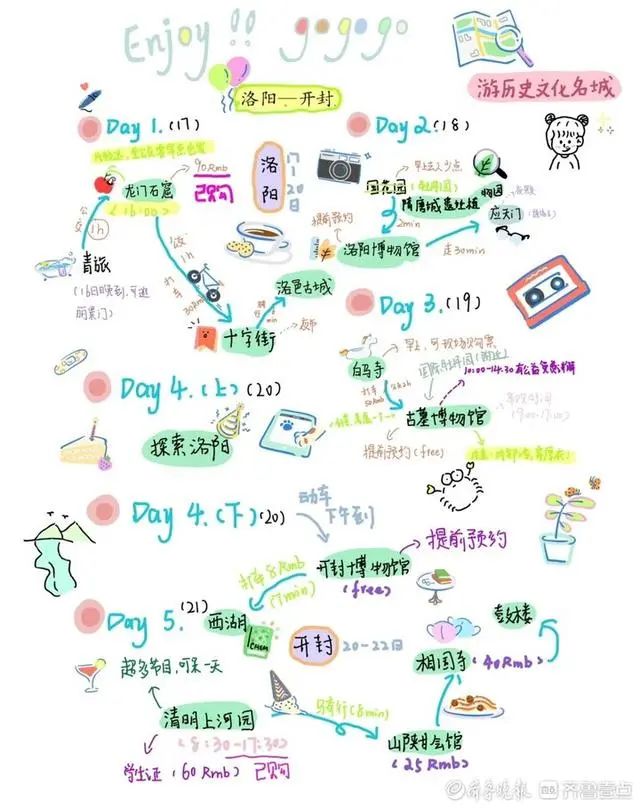 Enjoy !! gogogo
游历史文化名城
洛阳—开封
Day 1. (17)
90Rmb
已购
龙门石窟
(16:00)
公交
1h
青旅
(16日晚到,可逛
丽景门)
打车
30Rmb
十字街
洛邑古城
洛阳
17-20日
Day 2. (18)
国花园
隋唐城遗址植物园
应天门
2min
提前预约
洛阳博物馆
走30min
Day 3. (19)
白马寺
早上,可现场购票
打车
50Rmb
10:00-14:30有公益免费讲解
古墓博物馆
提前预约(free)
Day 4.(上) (20)
探索洛阳
Day 4.(下) (20)
动车
下午到
提前预约
开封博物馆
(free)
打车8Rmb
(7min)
Day 5. (21)
西湖
开封
20-22日
超多节目,可呆一天
清明上河园
(8:30-17:30)
学生证 (60Rmb) 已购
骑行(8min)
山陕甘会馆
(25Rmb)
相国寺 (40Rmb)
鼓楼
齐鲁晚报 齐鲁壹点